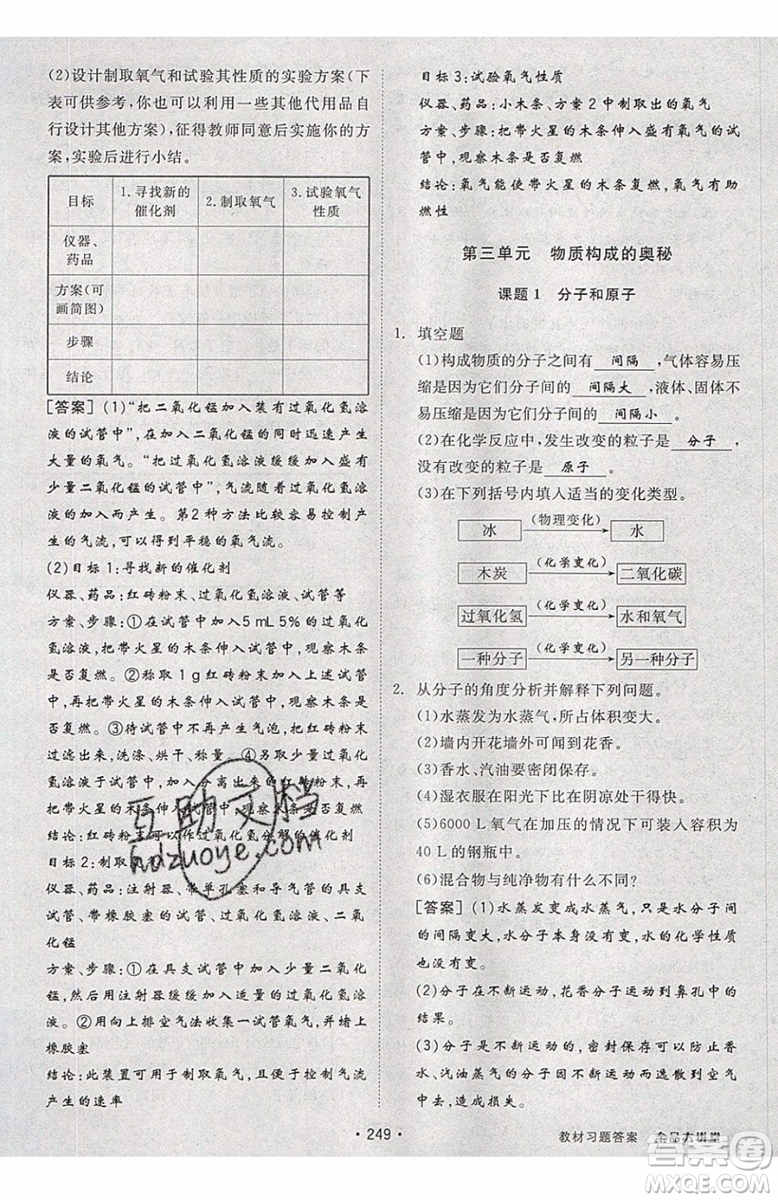 (2)设计制取氧气和试验其性质的实验方案(下
表可供参考,你也可以利用一些其他代用品自
行设计其他方案),征得教师同意后实施你的方
案,实验后进行小结。
目标 1.寻找新的催化剂 2.制取氧气 3.试验氧气性质
仪器、药品
方案(可画简图)
步骤
结论
[答案] (1)“把二氧化锰加入装有过氧化氢溶
液的试管中”,在加入二氧化锰的同时迅速产生
大量的氧气。“把过氧化氢溶液缓缓加入盛有
少量二氧化锰的试管中”,氧气随过氧化氢溶液
的加入而产生。第2种方法比较容易控制产
生的气流,可得到平稳的氧气流。
(2)目标1:寻找新的催化剂
仪器、药品:红砖粉末、过氧化氢溶液、试管等
方案、步骤:①在试管中加入5 mL 5%的过氧化
氢溶液,把带火星的木条伸入试管中,观察木条
是否复燃。②称取1 g红砖粉末,加入过氧化
氢溶液中,把带火星的木条伸入试管中,观察木
条是否复燃。
③待试管中不再产生气泡,把红砖粉末
过滤出来,洗涤、烘干、称量 ④另取过氧化
氢溶液于试管中,加入分离出来的红砖粉末,
把带火星的木条伸入试管中,观察木条是否复燃
结论:红砖粉末可作过氧化氢分解的催化剂
目标2:制取氧气
仪器、药品:注射器、带单孔塞和导气管的具支
试管、带橡胶塞的试管、过氧化氢溶液、二氧
化锰
方案、步骤:①在具支试管中加入少量二氧化
锰,然后用注射器缓缓加入适量的过氧化氢溶
液 ②用向上排空气法收集一试管氧气,并塞上
橡胶塞
结论:此装置可用于制取氧气,且能控制气流
产生的速率
目标3:试验氧气性质
仪器、药品:小木条、方案2中制取出的氧气
方案、步骤:把带火星的木条伸入盛有氧气的试
管中,观察木条是否复燃
结论:氧气能使带火星的木条复燃,氧气有助
燃性
第三单元 物质构成的奥秘
课题1 分子和原子
1. 填空题
(1)构成物质的分子之间有 间隔 ,气体容易压
缩是因为它们分子之间的 间隔大 ,液体、固体不
易压缩是因为它们分子之间的 间隔小 。
(2)在化学反应中,发生改变的粒子是 分子 ,
没有改变的粒子是 原子 。
(3)在下列括号内填入适当的变化类型。
冰 (物理变化) 水
木炭 (化学变化) 二氧化碳
过氧化氢 (化学变化) 水和氧气
一种分子 (化学变化) 另一种分子
2. 从分子的角度分析并解释下列问题。
(1)水蒸发为水蒸气,所占体积变大。
(2)墙内开花墙外可闻到花香。
(3)香水、汽油要密闭保存。
(4)湿衣服在阳光下比在阴凉处干得快。
(5)6000 L氧气在加压的情况下可装入容积为
40 L的钢瓶中。
(6)混合物与纯净物有什么不同?
[答案] (1)水蒸发变成水蒸气,只是水分子之间
的间隔变大,水分子本身没有变,水分子的大小
也没有变。
(2)分子在不断运动,花香分子运动到鼻孔中的
结果。
(3)分子是不断运动的,密封保存可以防止香
水、汽油蒸气的分子在不断运动中扩散到空气
中去,造成损失。
·249·
教材习题答案 全品大讲堂
互助文档
hdzuoye.com
作业精灵